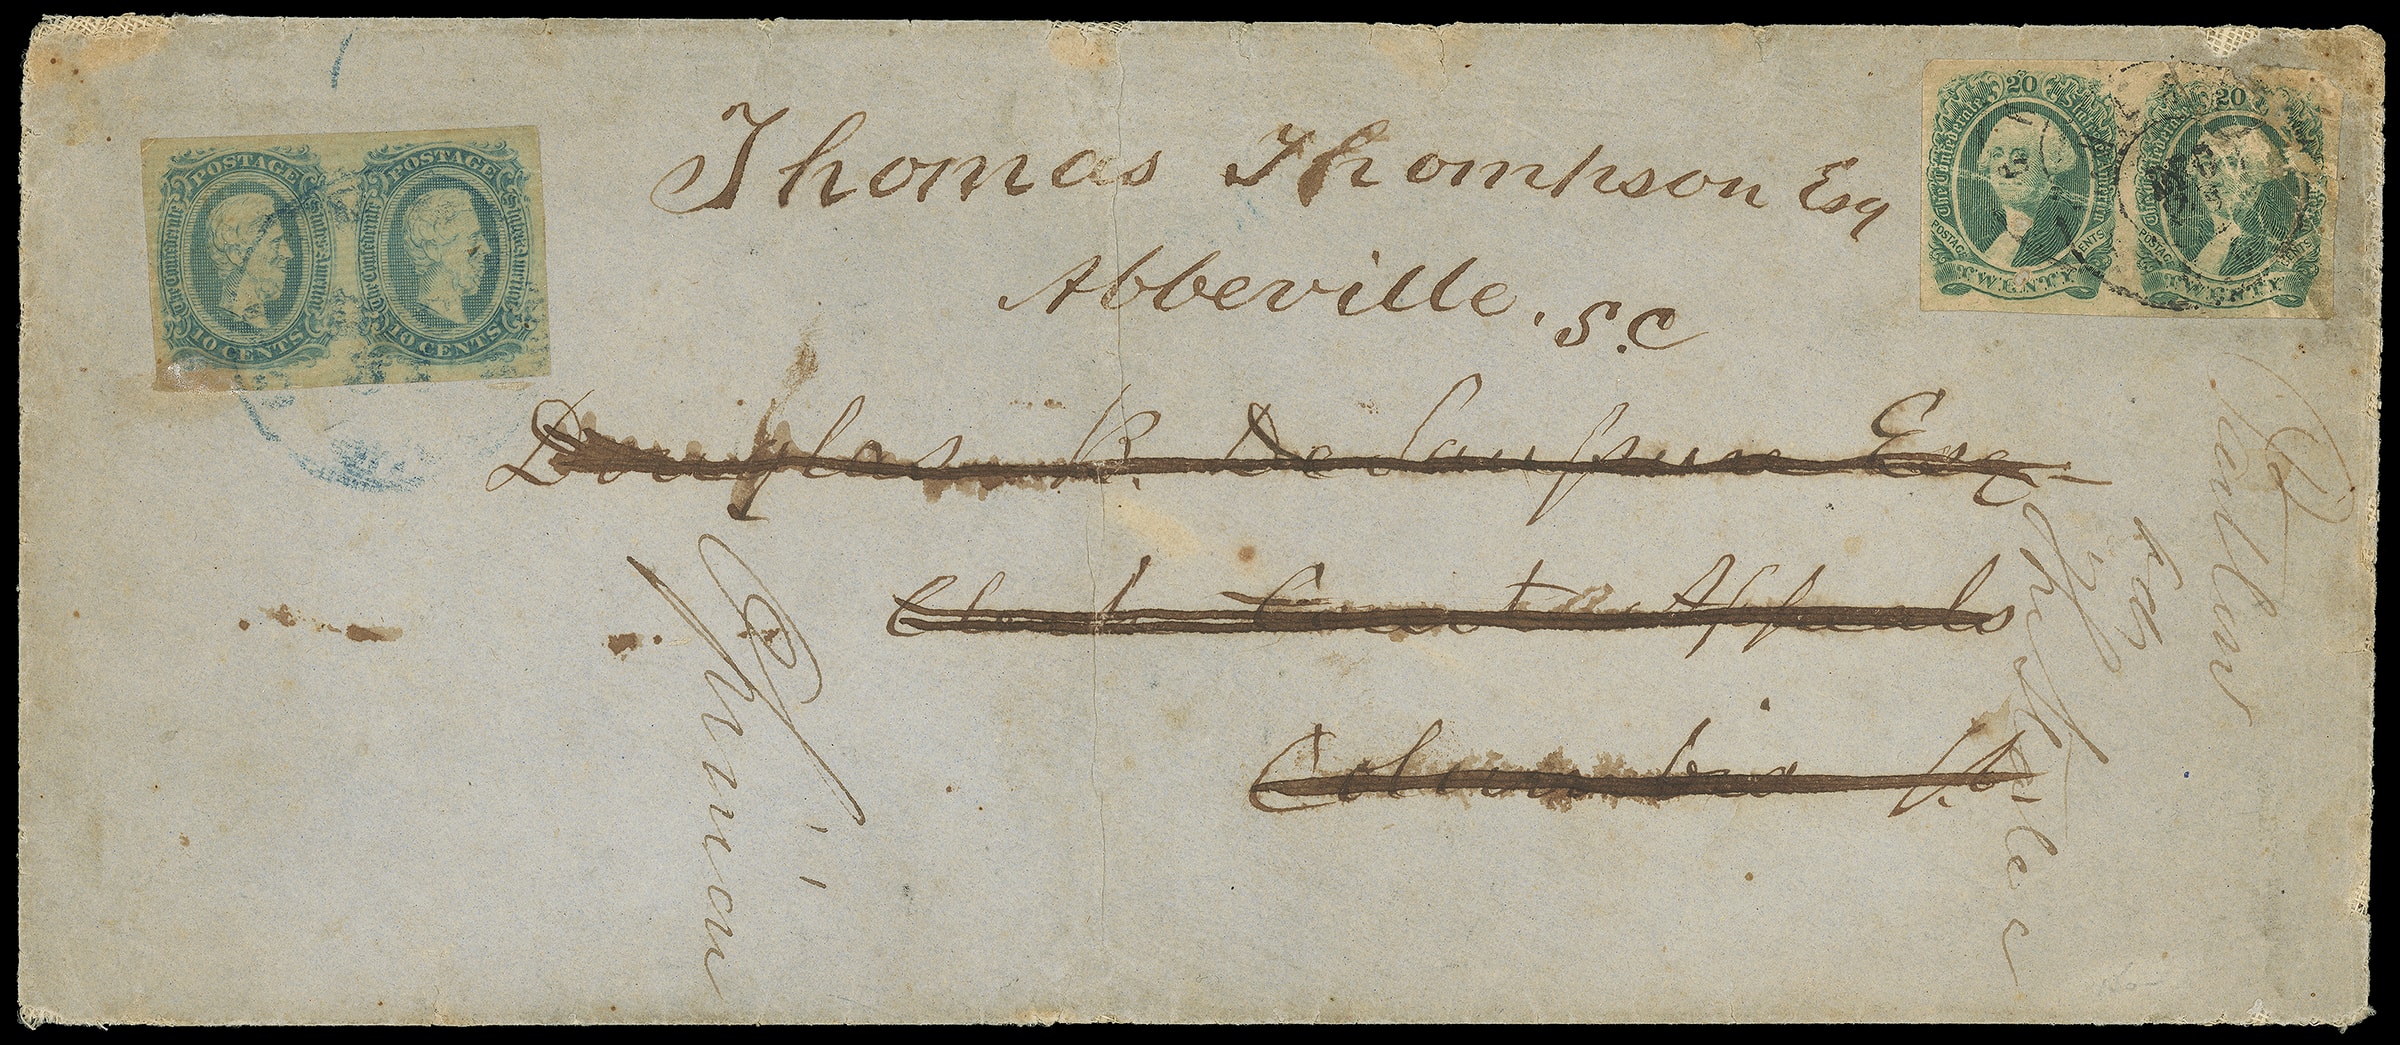 POSTAGE
The Confederate States of America
10 CENTS
POSTAGE
The Confederate States of America
10 CENTS
20
The Confederate States of America
POSTAGE CENTS
TWENTY
20
The Confederate States of America
POSTAGE CENTS
TWENTY
Thomas Thompson Esq
Abbeville, S.C
Douglas R. DeSaussure Esq
Clerk Court Appeals
Columbia S.C.
Opinion